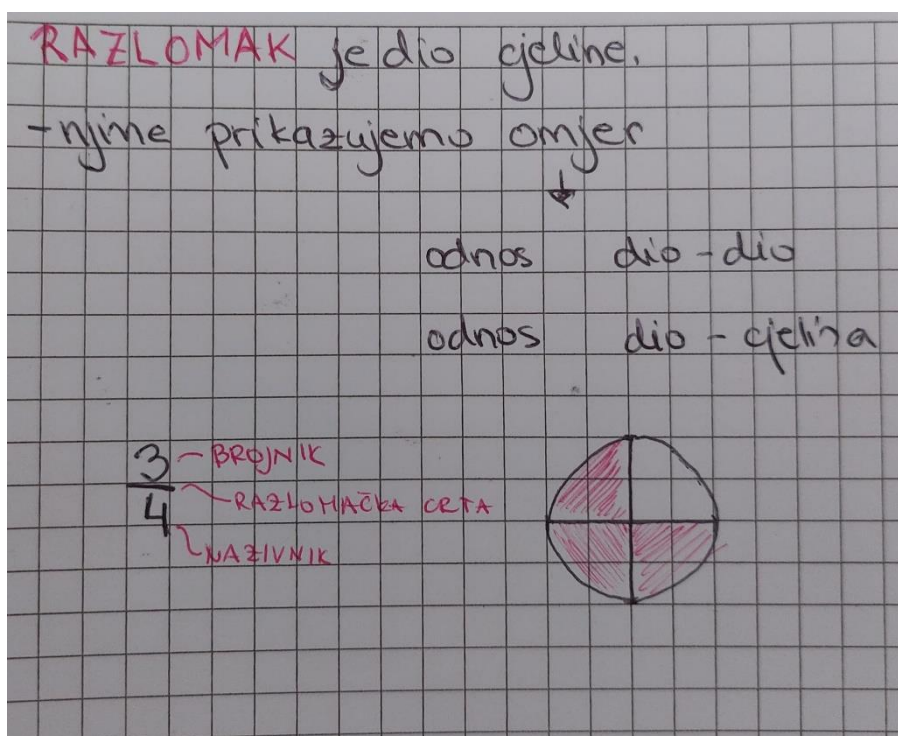 RAZLOMAK je dio cjeline.
-njime prikazujemo omjer
odnos dio - dio
odnos dio - cjelina
3 - BROJNIK
- RAZLOMAČKA CRTA
4 - NAZIVNIK